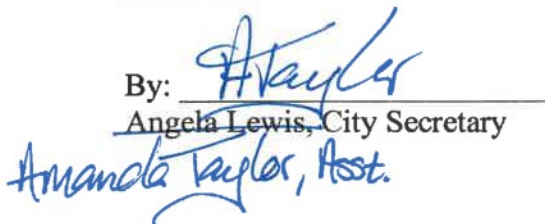 By: ATaylor
Angela Lewis, City Secretary
Amanda Taylor, Asst.